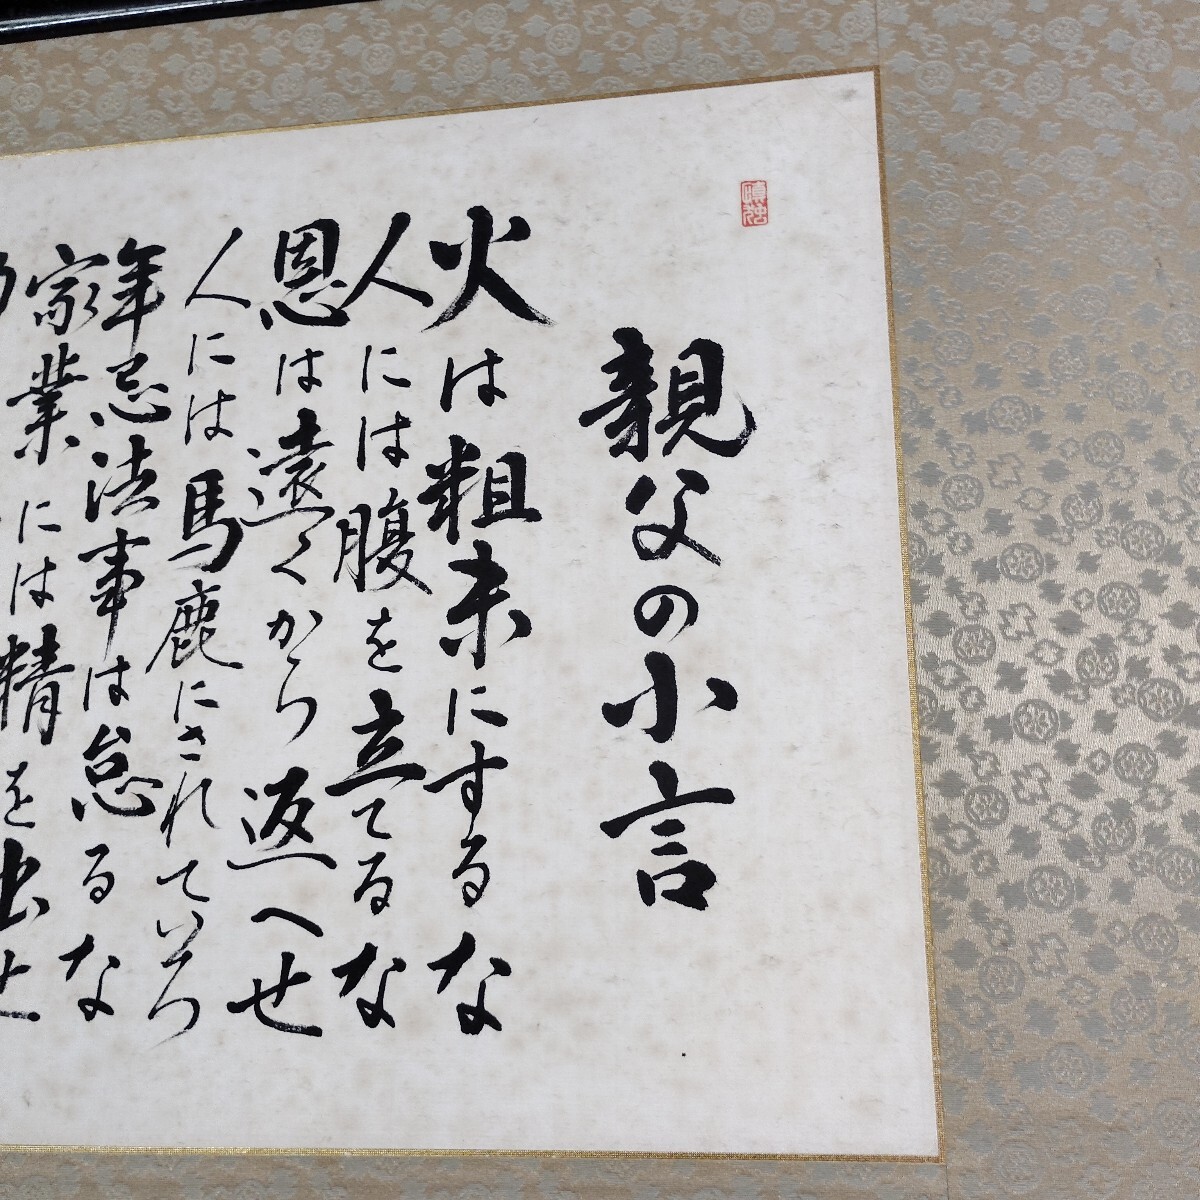 親父の小言
火は粗末にするな
人には腹を立てるな
恩は遠くから返へせ
人には馬鹿にされていろ
年忌法事は怠るな
家業には精を出せ